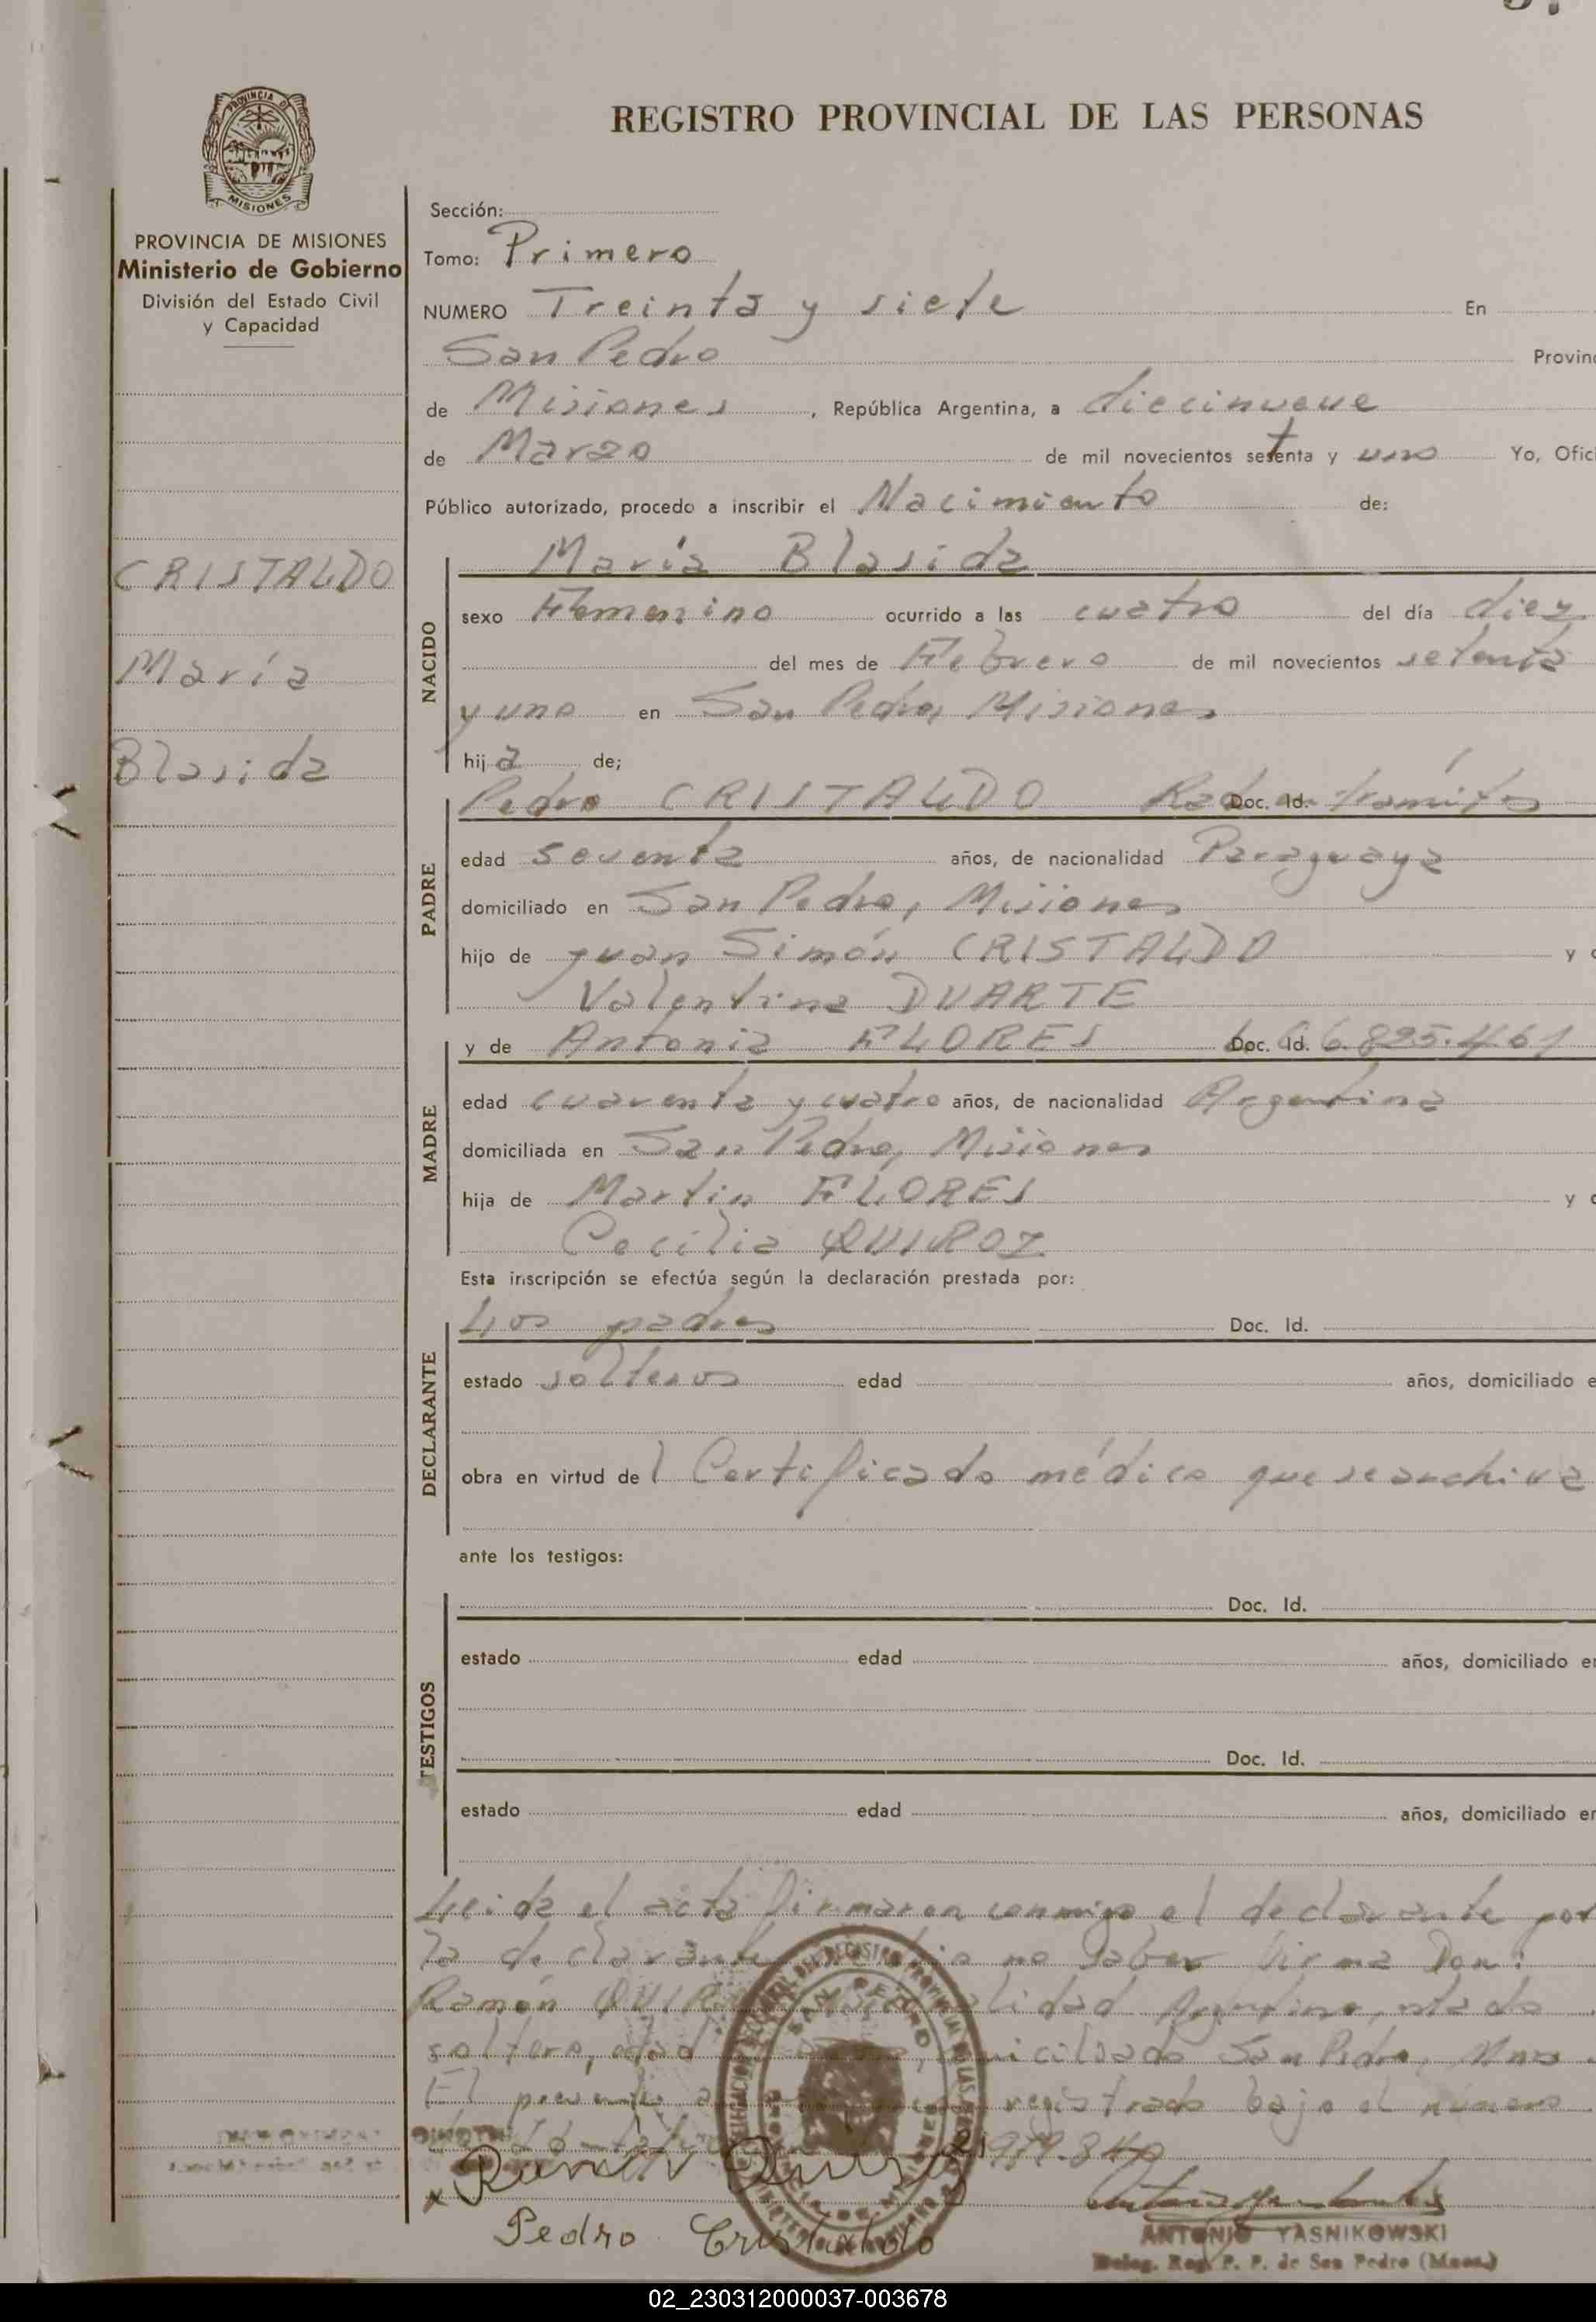 REGISTRO PROVINCIAL DE LAS PERSONAS
PROVINCIA DE
MISIONES
PROVINCIA DE MISIONES
Ministerio de Gobierno
División del Estado Civil
y Capacidad
CRISTALDO
María
Blasida
Sección:
Tomo: Primero
NUMERO Treinta y siete En
San Pedro Provinc
de Misiones , República Argentina, a diecinueve
de Marzo de mil novecientos setenta y uno Yo, Ofici
Público autorizado, procedo a inscribir el Nacimiento de:
NACIDO
María Blasida
sexo Femenino ocurrido a las cuatro del día diez
del mes de Febrero de mil novecientos setenta
y uno en San Pedro, Misiones
hija de;
PADRE
Pedro CRISTALDO Rad. en trámites Doc. Id.
edad seventa años, de nacionalidad Paraguaya
domiciliado en San Pedro, Misiones
hijo de Juan Simón CRISTALDO y d
Valentina DUARTE
MADRE
y de Antonia FLORES Doc. Id. 6.825.461
edad cuarenta y cuatro años, de nacionalidad Argentina
domiciliada en San Pedro, Misiones
hija de Martin FLORES y d
Cecilia QUIROZ
Esta inscripción se efectúa según la declaración prestada por:
DECLARANTE
Los padres Doc. Id.
estado solteros edad años, domiciliado e
obra en virtud del Certificado médico que se archiva
ante los testigos:
TESTIGOS
Doc. Id.
estado edad años, domiciliado en
Doc. Id.
estado edad años, domiciliado en
Leida el acta firmaron conmigo el declarante por
la declarante no saber firma Don:
Ramón Argentino, estado
soltero, edad San Pedro, Mnes.
El presente registrado bajo el número
SAN PEDRO
Ramón Quiroz
Pedro Cristaldo
ANTONIO YASNIKOWSKI
Deleg. Reg. P. P. de San Pedro (Mnes.)
02_230312000037-003678